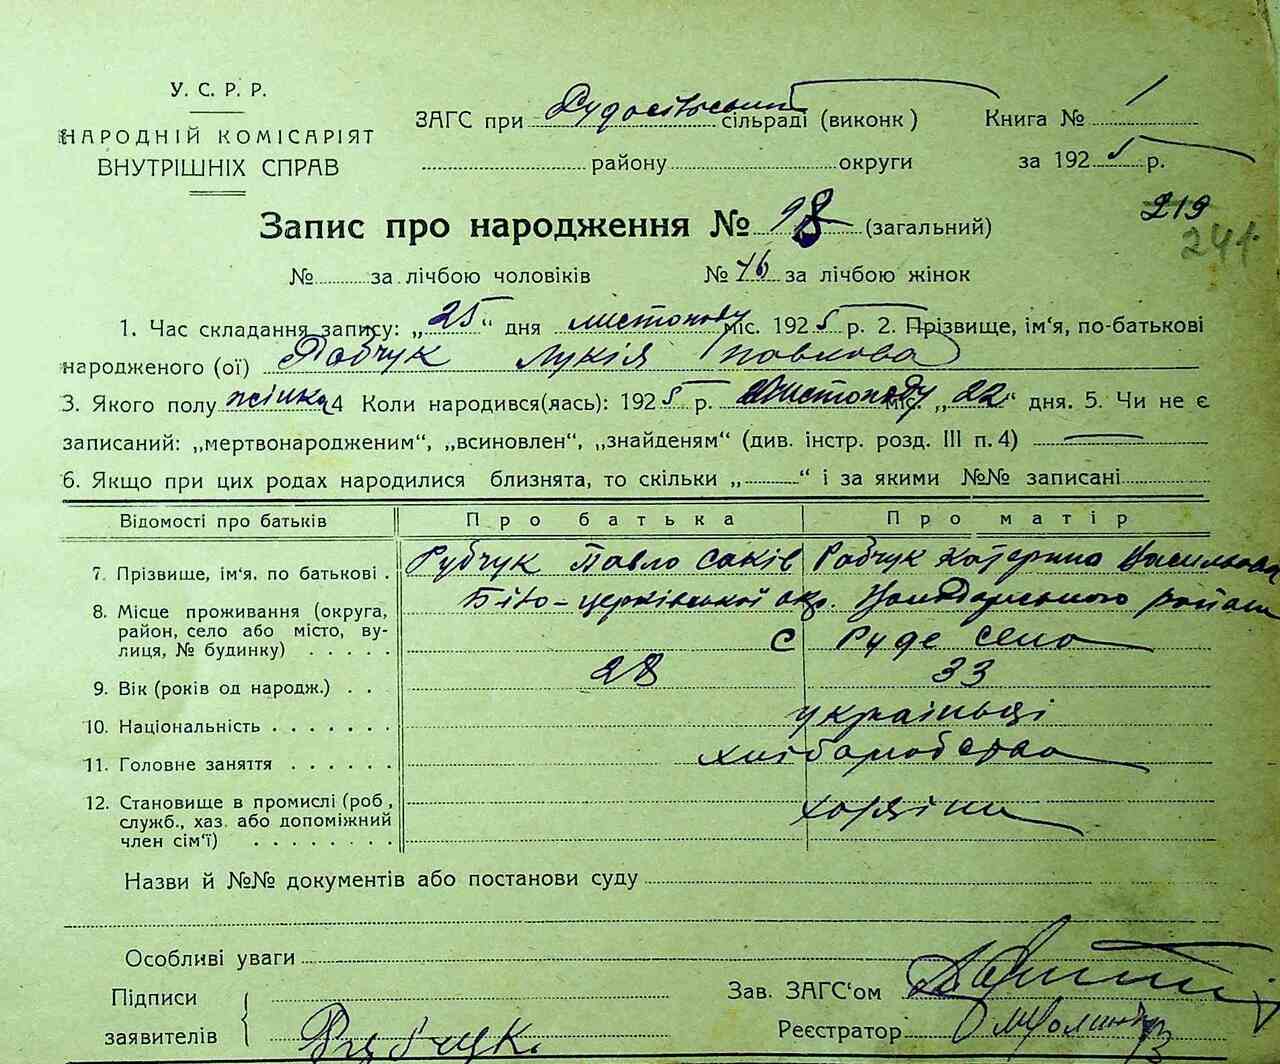 У. С. Р. Р.
НАРОДНІЙ КОМІСАРІЯТ
ВНУТРІШНІХ СПРАВ
ЗАГС при Рудосільський сільраді (виконк) Книга № 1
району округи за 1925 р.
Запис про народження № 98 (загальний)
219
241
№ за лічбою чоловіків № 46 за лічбою жінок
1. Час складання запису: „25“ дня листопаду міс. 1925 р. 2. Прізвище, ім'я, по-батькові
народженого (ої) Рабчук Лукія Павлова
3. Якого полу жінка 4 Коли народився(лась): 1925 р. Листопаду міс. „22“ дня. 5. Чи не є
записаний: „мертвонародженим“, „всиновлен“, „знайденям“ (див. інстр. розд. III п. 4)
6. Якщо при цих родах народилися близнята, то скільки „ “ і за якими №№ записані
Відомості про батьків Про батька Про матір
7. Прізвище, ім'я, по батькові . Рубчук Павло Саків Рабчук Катерина Васильова
8. Місце проживання (округа, район, село або місто, вулиця, № будинку) . . . . . Біло-церківської окр. району
с Руде село
9. Вік (років од народж.) . . 28 33
10. Національність . . . . . . . українці
11. Головне заняття . . . . . . хліборобство
12. Становище в промислі (роб, служб., хаз. або допоміжний член сім'ї) . . . . . . . .
Назви й №№ документів або постанови суду
Особливі уваги
Підписи
заявителів Рабчук
Зав. ЗАГС'ом
Реєстратор